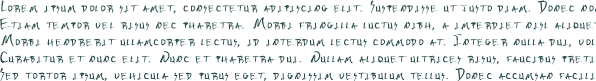 Lorem ipsum dolor sit amet, consectetur adipiscing elit. Suspendisse ut justo diam. Donec non
Etiam tempor vel risus nec pharetra. Morbi fringilla luctus nibh, a imperdiet nisl aliquet
Morbi hendrerit ullamcorper lectus, id interdum lectus commodo at. Integer nulla dui,
Curabitur et nunc elit. Nunc et pharetra dui. Nullam aliquet ultrices risus, faucibus
Sed tortor ipsum, vehicula sed purus eget, dignissim vestibulum tellus. Donec accumsan